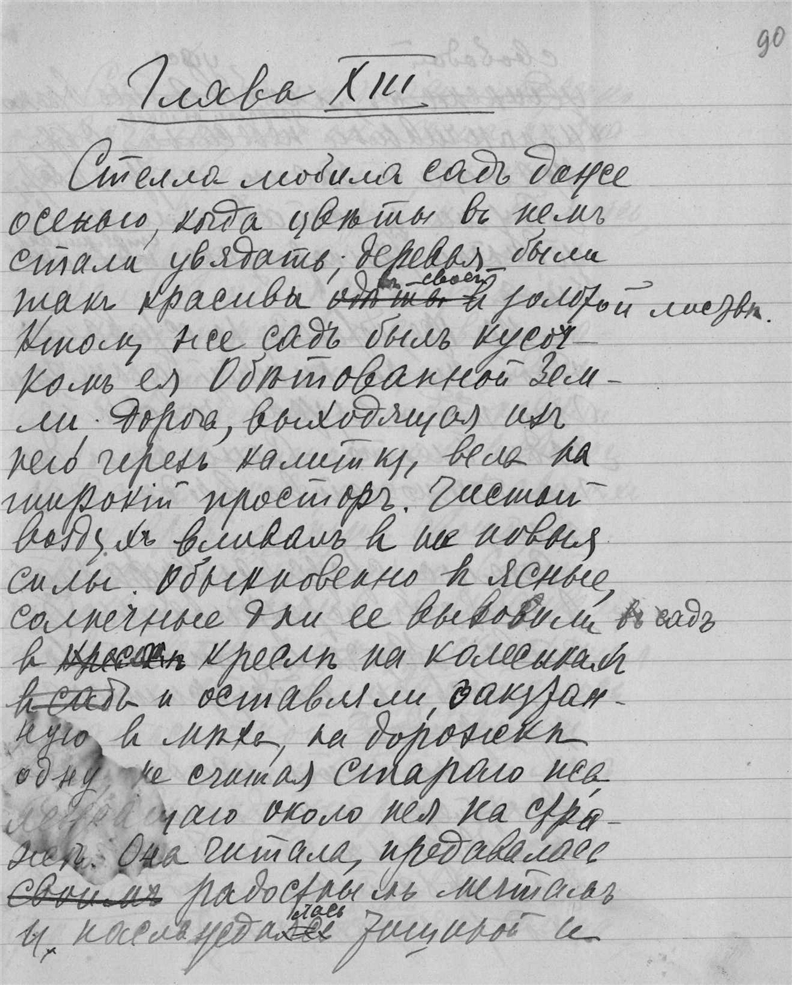 90
Глава XIII
Стелла любила садъ даже
осенью, когда цвѣты въ немъ
стали увядать; деревья были
такъ красивы одѣты въ своей золотой листвѣ.
К тому же садъ былъ кусоч-
комъ ея Обѣтованной Зем-
ли. Дорога, выходящая изъ
него черезъ калитку, вела на
широкій просторъ. Чистый
воздухъ вливалъ в нее новыя
силы. Обыкновенно в ясные,
солнечные дни ее вывозили въ садъ
в креслѣ на колесикахъ
въ садъ и оставляли, закутан-
ную в мѣха, на дорожкѣ
одну, не считая стараго пса
щаго около нея на стра-
жѣ. Она читала, предавалась
своимъ радостнымъ мечтамъ
и наслаждалась тишиной и